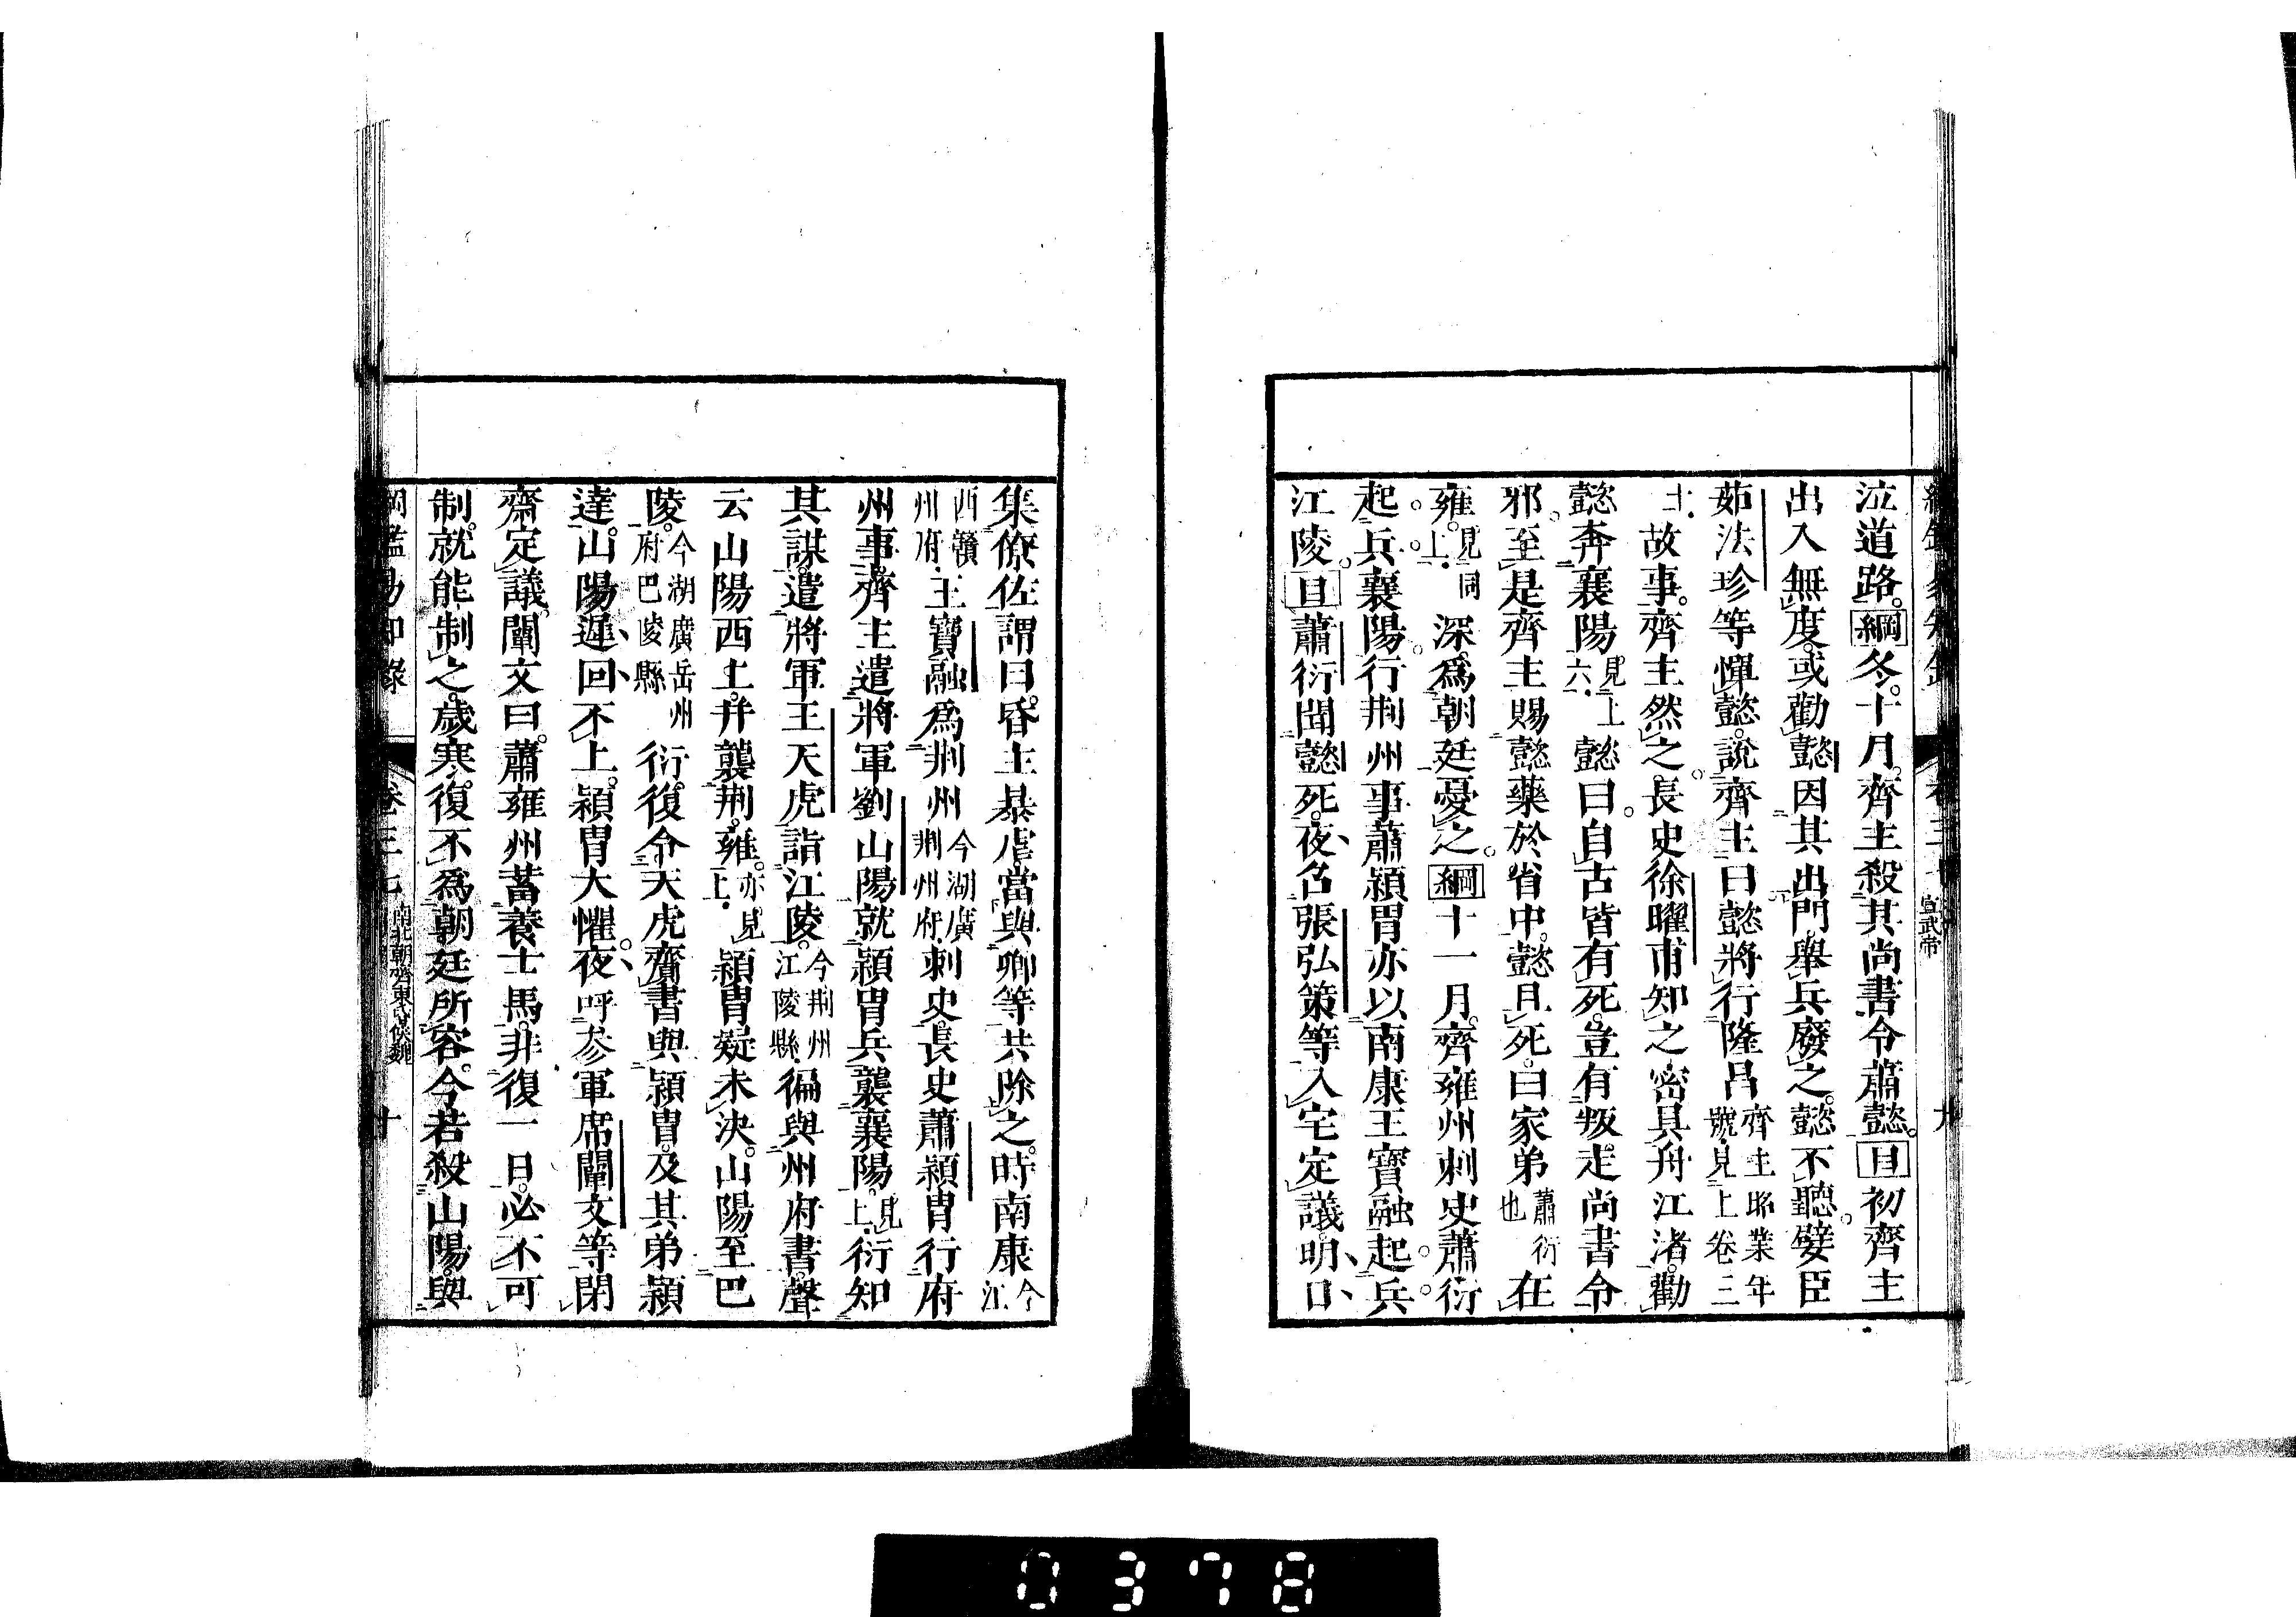 泣道路。綱冬。十月。齊主殺其尚書令蕭懿。目初齊主
出入無度。或勸懿因其出門舉兵廢之。懿不聽。嬖臣
茹法珍等憚懿。說齊主曰。懿將行隆昌齊主昭業年號。見上卷三
十。故事。齊主然之。長史徐曜甫知之。密具舟江渚。勸
懿奔襄陽見上六。懿曰。自古皆有死。豈有叛走尚書令
邪。至是齊主賜懿藥於省中。懿且死。曰家弟蕭衍也在
雍。見同上。深爲朝廷憂之。綱十一月。齊雍州刺史蕭衍
起兵襄陽。行荆州事蕭穎胄亦以南康王寶融起兵
江陵。目蕭衍聞懿死。夜召張弘策等入宅定議。明日、
集僚佐謂曰。昏主暴虐當與卿等共除之。時南康今江
西贛州府。王寶融爲荆州今湖廣荆州府。刺史。長史蕭穎胄行府
州事。齊主遣將軍劉山陽就穎胄兵襲襄陽。見上。衍知
其謀。遣將軍王天虎詣江陵。今荆州江陵縣。徧與州府書。聲
云山陽西上。并襲荆。雍。亦見上。穎胄疑未決。山陽至巴
陵。今湖廣岳州府巴陵縣衍復令天虎齎書與穎胄。及其弟穎
達。山陽遲回不上。穎胄大懼。夜呼參軍席闡文等閉
齋定議。闡文曰。蕭雍州蓄養士馬。非復一日。必不可
制。就能制之。歲寒。復不爲朝廷所容。今若殺山陽。與
綱鑑易知錄 卷三七 南北朝齊東昏侯魏 十
宣武帝 九
0378